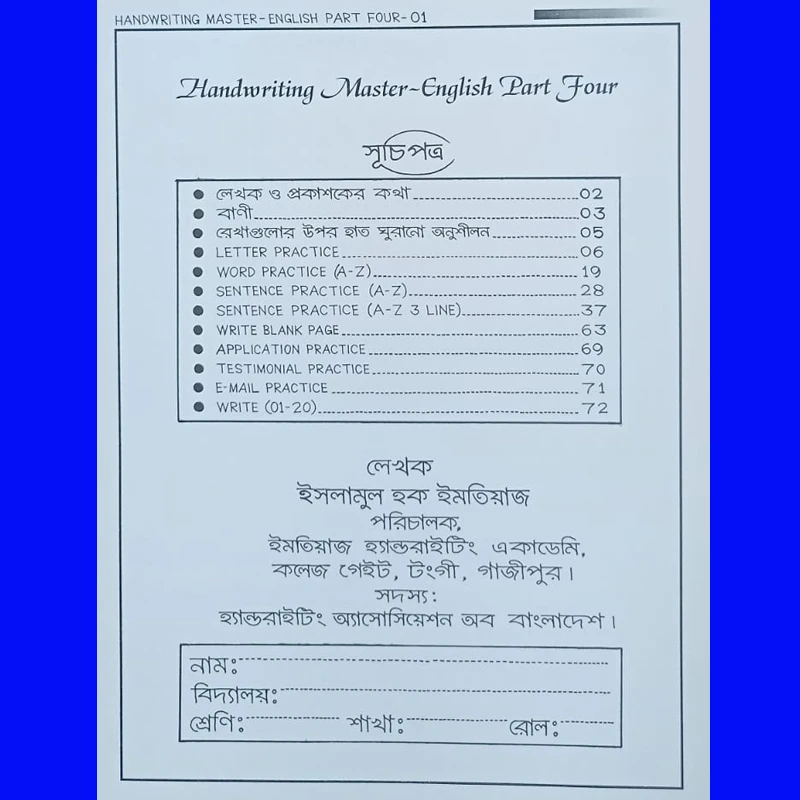 HANDWRITING MASTER-ENGLISH PART FOUR-01
Handwriting Master-English Part Four
সূচিপত্র
● লেখক ও প্রকাশকের কথা 02
● বাণী 03
● রেখাগুলোর উপর হাত ঘুরানো অনুশীলন 05
● LETTER PRACTICE 06
● WORD PRACTICE (A-Z) 19
● SENTENCE PRACTICE (A-Z) 28
● SENTENCE PRACTICE (A-Z 3 LINE) 37
● WRITE BLANK PAGE 63
● APPLICATION PRACTICE 69
● TESTIMONIAL PRACTICE 70
● E-MAIL PRACTICE 71
● WRITE (01-20) 72
লেখক
ইসলামুল হক ইমতিয়াজ
পরিচালক,
ইমতিয়াজ হ্যান্ডরাইটিং একাডেমি,
কলেজ গেইট, টংগী, গাজীপুর।
সদস্য:
হ্যান্ডরাইটিং অ্যাসোসিয়েশন অব বাংলাদেশ।
নাম:
বিদ্যালয়:
শ্রেণি: শাখা: রোল: